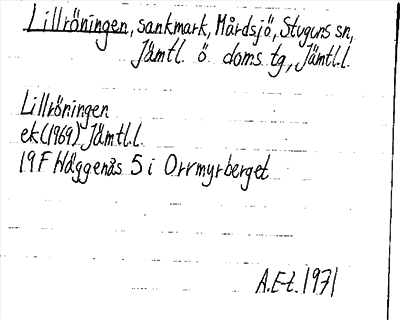 Lillröningen, sankmark, Mårdsjö, Stuguns sn,
Jämtl. ö doms. tg, Jämtl.l.
Lillröningen
ek(1969) Jämtl.l.
19F Häggenås 5 i Orrmyrberget
A.E-t. 1971